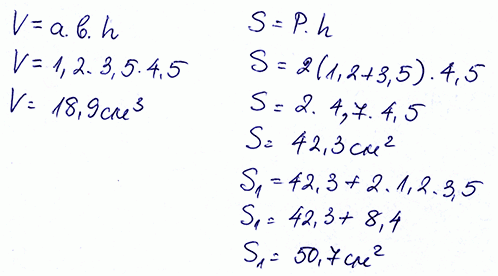 V = a.b.h
V = 1,2.3,5.4,5
V = 18,9см³
S = P.h
S = 2(1,2+3,5).4,5
S = 2.4,7.4,5
S = 42,3см²
S₁ = 42,3 + 2.1,2.3,5
S₁ = 42,3 + 8,4
S₁ = 50,7см²